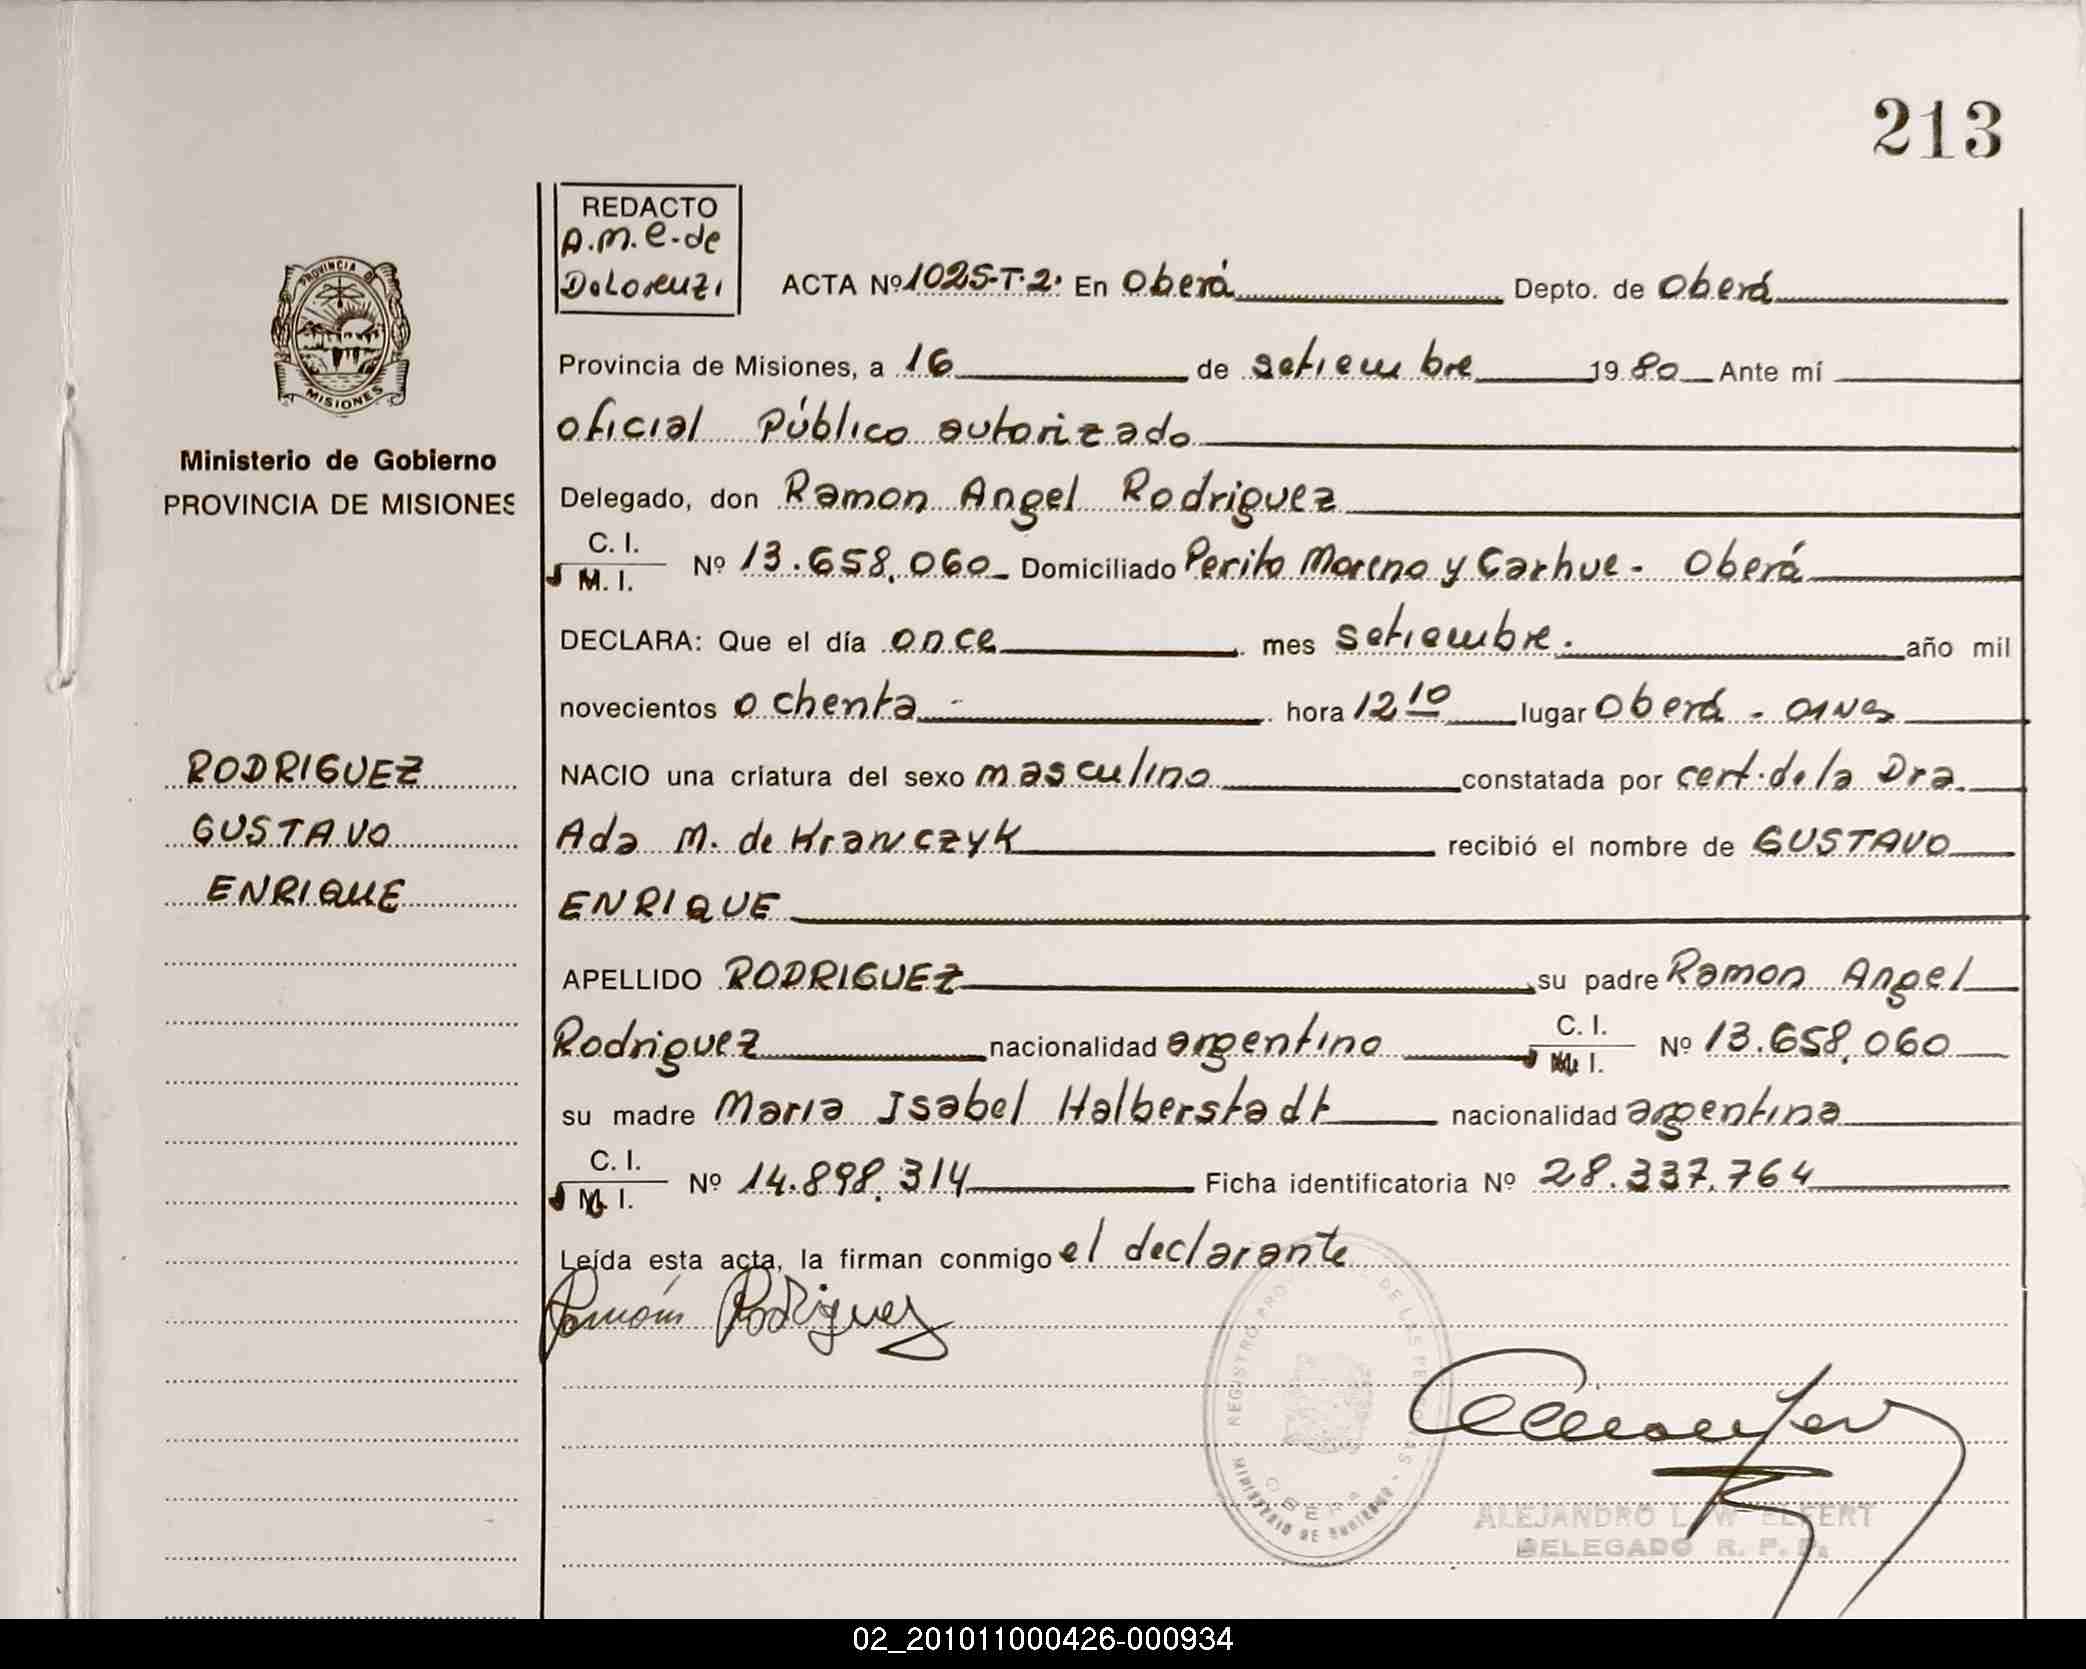 213
REDACTO
A.M.E. de
DeLorenzi
ACTA Nº 1025-T.2. En Oberá Depto. de Oberá
PROVINCIA DE
MISIONES
Provincia de Misiones, a 16 de setiembre 1980 Ante mí
oficial Público autorizado
Ministerio de Gobierno
PROVINCIA DE MISIONES
Delegado, don Ramon Angel Rodriguez
C. I.
M. I. Nº 13.658.060 Domiciliado Perito Moreno y Carhue - Oberá
DECLARA: Que el día once mes setiembre. año mil
novecientos ochenta hora 12 10 lugar Oberá -
RODRIGUEZ
GUSTAVO
ENRIQUE
NACIO una criatura del sexo masculino constatada por cert. de la Dra.
Ada M. de Krawczyk recibió el nombre de GUSTAVO
ENRIQUE
APELLIDO RODRIGUEZ su padre Ramon Angel
Rodriguez nacionalidad argentino C. I. M. I. Nº 13.658.060
su madre Maria Isabel Halberstadt nacionalidad argentina
C. I.
M. I. Nº 14.898.314 Ficha identificatoria Nº 28.337.764
Leída esta acta, la firman conmigo el declarante
Ramón Rodriguez
REGISTRO DE LAS PERSONAS
OBERA
MINISTERIO DE GOBIERNO
ALEJANDRO L. W ELFERT
DELEGADO R. P. P.
02_201011000426-000934